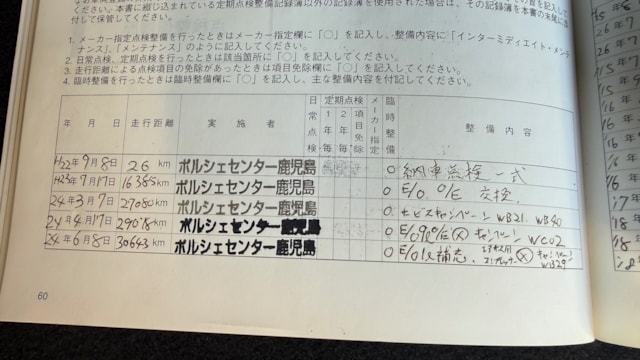 ください。本書に綴じ込まれている定期点検整備記録簿以外の記録簿を使用された場合は、その記録簿を本書の末尾に添
付して保管してください。
1. メーカー指定点検整備を行ったときはメーカー指定欄に「○」を記入し、整備内容に「インターミディエイト・メンテ
ナンス」、「メンテナンス」のように記入してください。
2. 日常点検、定期点検を行ったときは該当箇所に「○」を記入してください。
3. 走行距離による点検項目の免除があったときは項目免除欄に「○」を記入してください。
4. 臨時整備を行ったときは臨時整備欄に「○」を記入し、主な整備内容を付記してください。
年 月 日 走行距離 実施者 日常点検 定期点検 1年毎 2年毎 項目免除 メーカー指定 臨時整備 整備内容
H22年9月8日 26 km ポルシェセンター鹿児島 ○ 納車点検一式
H23年7月17日 16385 km ポルシェセンター鹿児島 ○ E/O. O/E 交換.
24年3月7日 27080 km ポルシェセンター鹿児島 ○ サービスキャンペーン WB21. WB40
24年4月17日 29018 km ポルシェセンター鹿児島 ○ キャンペーン WC02
24年6月8日 30643 km ポルシェセンター鹿児島 ○ E/O 1ℓ補充. キャンペーン WB29
60